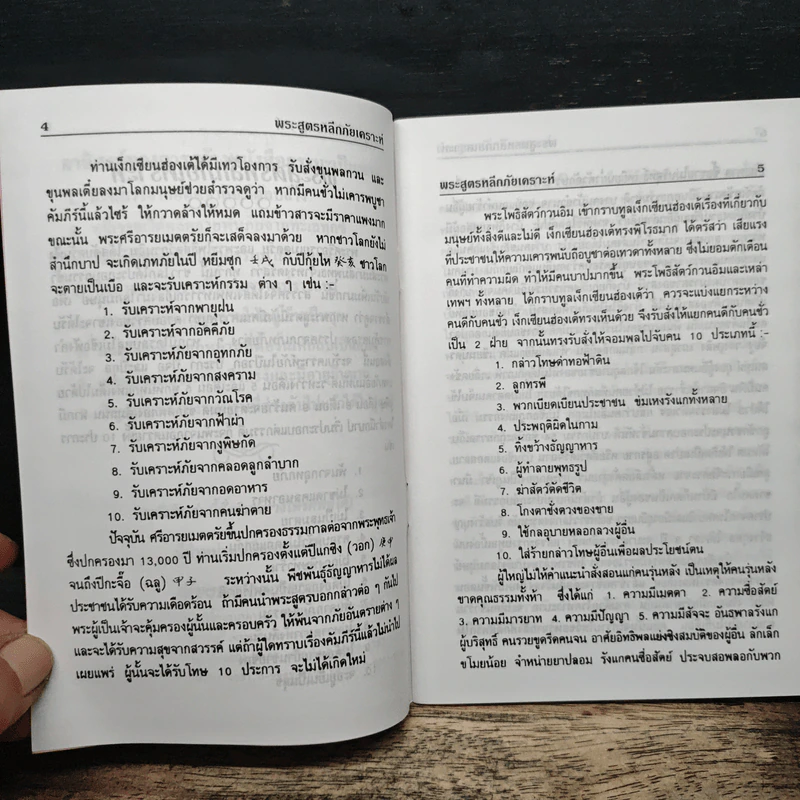 4 พระสูตรหลีกภัยเคราะห์
ท่านเง็กเซียนฮ่องเต้ได้มีเทวโองการ รับสั่งขุนพลกวน และ
ขุนพลเตี๋ยลงมาโลกมนุษย์ช่วยสำรวจดูว่า หากมีคนชั่วไม่เคารพบูชา
คัมภีร์นี้แล้วไซร้ ให้กวาดล้างให้หมด แถมข้าวสารจะมีราคาแพงมาก
ขณะนั้น พระศรีอารยเมตตรัยก็จะเสด็จลงมาด้วย หากชาวโลกยังไม่
สำนึกบาป จะเกิดเภทภัยในปี หยิมซุก 壬戌 กับปีกุ้ยไห 癸亥 ชาวโลก
จะตายเป็นเบือ และจะรับเคราะห์กรรม ต่าง ๆ เช่น :-
1. รับเคราะห์จากพายุฝน
2. รับเคราะห์จากอัคคีภัย
3. รับเคราะห์ภัยจากอุทกภัย
4. รับเคราะห์ภัยจากสงคราม
5. รับเคราะห์ภัยจากวัณโรค
6. รับเคราะห์ภัยจากฟ้าผ่า
7. รับเคราะห์ภัยจากงูพิษกัด
8. รับเคราะห์ภัยจากคลอดลูกลำบาก
9. รับเคราะห์ภัยจากอดอาหาร
10. รับเคราะห์ภัยจากคนฆ่าตาย
ปัจจุบัน ศรีอารยเมตตรัยขึ้นปกครองธรรมกาลต่อจากพระพุทธเจ้า
ซึ่งปกครองมา 13,000 ปี ท่านเริ่มปกครองตั้งแต่ปีแกซิง (วอก) 庚申
จนถึงปีกะจื๊อ (ฉลู) 甲子 ระหว่างนั้น พืชพันธุ์ธัญญาหารไม่ได้ผล
ประชาชนได้รับความเดือดร้อน ถ้ามีคนนำพระสูตรบอกกล่าวต่อ ๆ กันไป
พระผู้เป็นเจ้าจะคุ้มครองผู้นั้นและครอบครัว ให้พ้นจากภัยอันตรายต่าง ๆ
และจะได้รับความสุขจากสวรรค์ แต่ถ้าผู้ใดทราบเรื่องคัมภีร์นี้แล้วไม่นำไป
เผยแพร่ ผู้นั้นจะได้รับโทษ 10 ประการ จะไม่ได้เกิดใหม่
พระสูตรหลีกภัยเคราะห์ 5
พระโพธิสัตว์กวนอิม เข้ากราบทูลเง็กเซียนฮ่องเต้เรื่องที่เกี่ยวกับ
มนุษย์ทั้งสิ่งดีและไม่ดี เง็กเซียนฮ่องเต้ทรงพิโรธมาก ได้ตรัสว่า เสียแรง
ที่ประชาชนให้ความเคารพนับถือบูชาต่อเทวดาทั้งหลาย ซึ่งไม่ยอมตักเตือน
คนที่ทำความผิด ทำให้มีคนบาปมากขึ้น พระโพธิสัตว์กวนอิมและเหล่า
เทพฯ ทั้งหลาย ได้กราบทูลเง็กเซียนฮ่องเต้ว่า ควรจะแบ่งแยกระหว่าง
คนดีกับคนชั่ว เง็กเซียนฮ่องเต้ทรงเห็นด้วย จึงรับสั่งให้แยกคนดีกับคนชั่ว
เป็น 2 ฝ่าย จากนั้นทรงรับสั่งให้จอมพลไปจับคน 10 ประเภทนี้ :-
1. กล่าวโทษด่าทอฟ้าดิน
2. ลูกทรพี
3. พวกเบียดเบียนประชาชน ข่มเหงรังแกทั้งหลาย
4. ประพฤติผิดในกาม
5. ทิ้งขว้างธัญญาหาร
6. ผู้ทำลายพุทธรูป
7. ฆ่าสัตว์ตัดชีวิต
8. โกงตาชั่งตวงของขาย
9. ใช้กลอุบายหลอกลวงผู้อื่น
10. ใส่ร้ายกล่าวโทษผู้อื่นเพื่อผลประโยชน์ตน
ผู้ใหญ่ไม่ให้คำแนะนำสั่งสอนแก่คนรุ่นหลัง เป็นเหตุให้คนรุ่นหลัง
ขาดคุณธรรมทั้งห้า ซึ่งได้แก่ 1. ความมีเมตตา 2. ความซื่อสัตย์
3. ความมีมารยาท 4. ความมีปัญญา 5. ความมีสัจจะ อันธพาลรังแก
ผู้บริสุทธิ์ คนรวยขูดรีดคนจน อาศัยอิทธิพลแย่งชิงสมบัติของผู้อื่น ลักเล็ก
ขโมยน้อย จำหน่ายยาปลอม รังแกคนซื่อสัตย์ ประจบสอพลอกับพวก